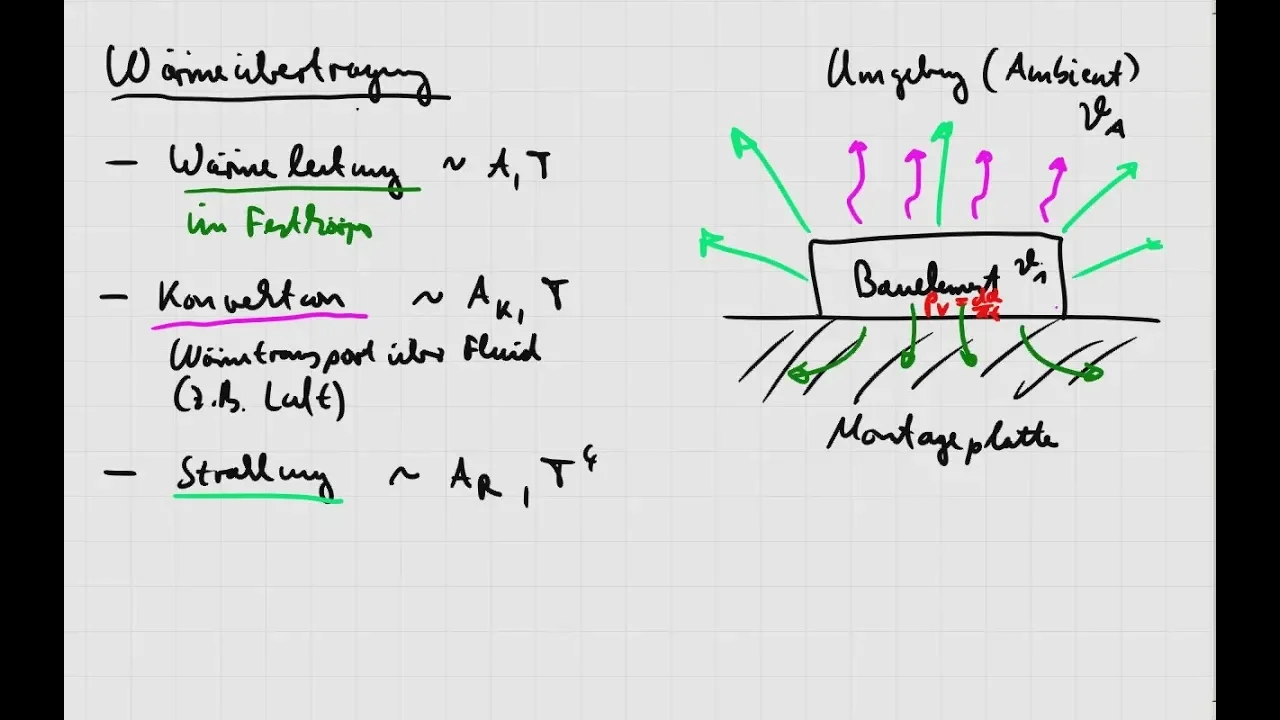 Wärmeübertragung
– Wärmeleitung ~ A, T
im Festkörper
– Konvektion ~ A_K, T
Wärmetransport über Fluid
(z.B. Luft)
– Strahlung ~ A_R, T⁴
Umgebung (Ambient)
ϑ_A
Bauelement ϑ_1
P_V =
Montageplatte